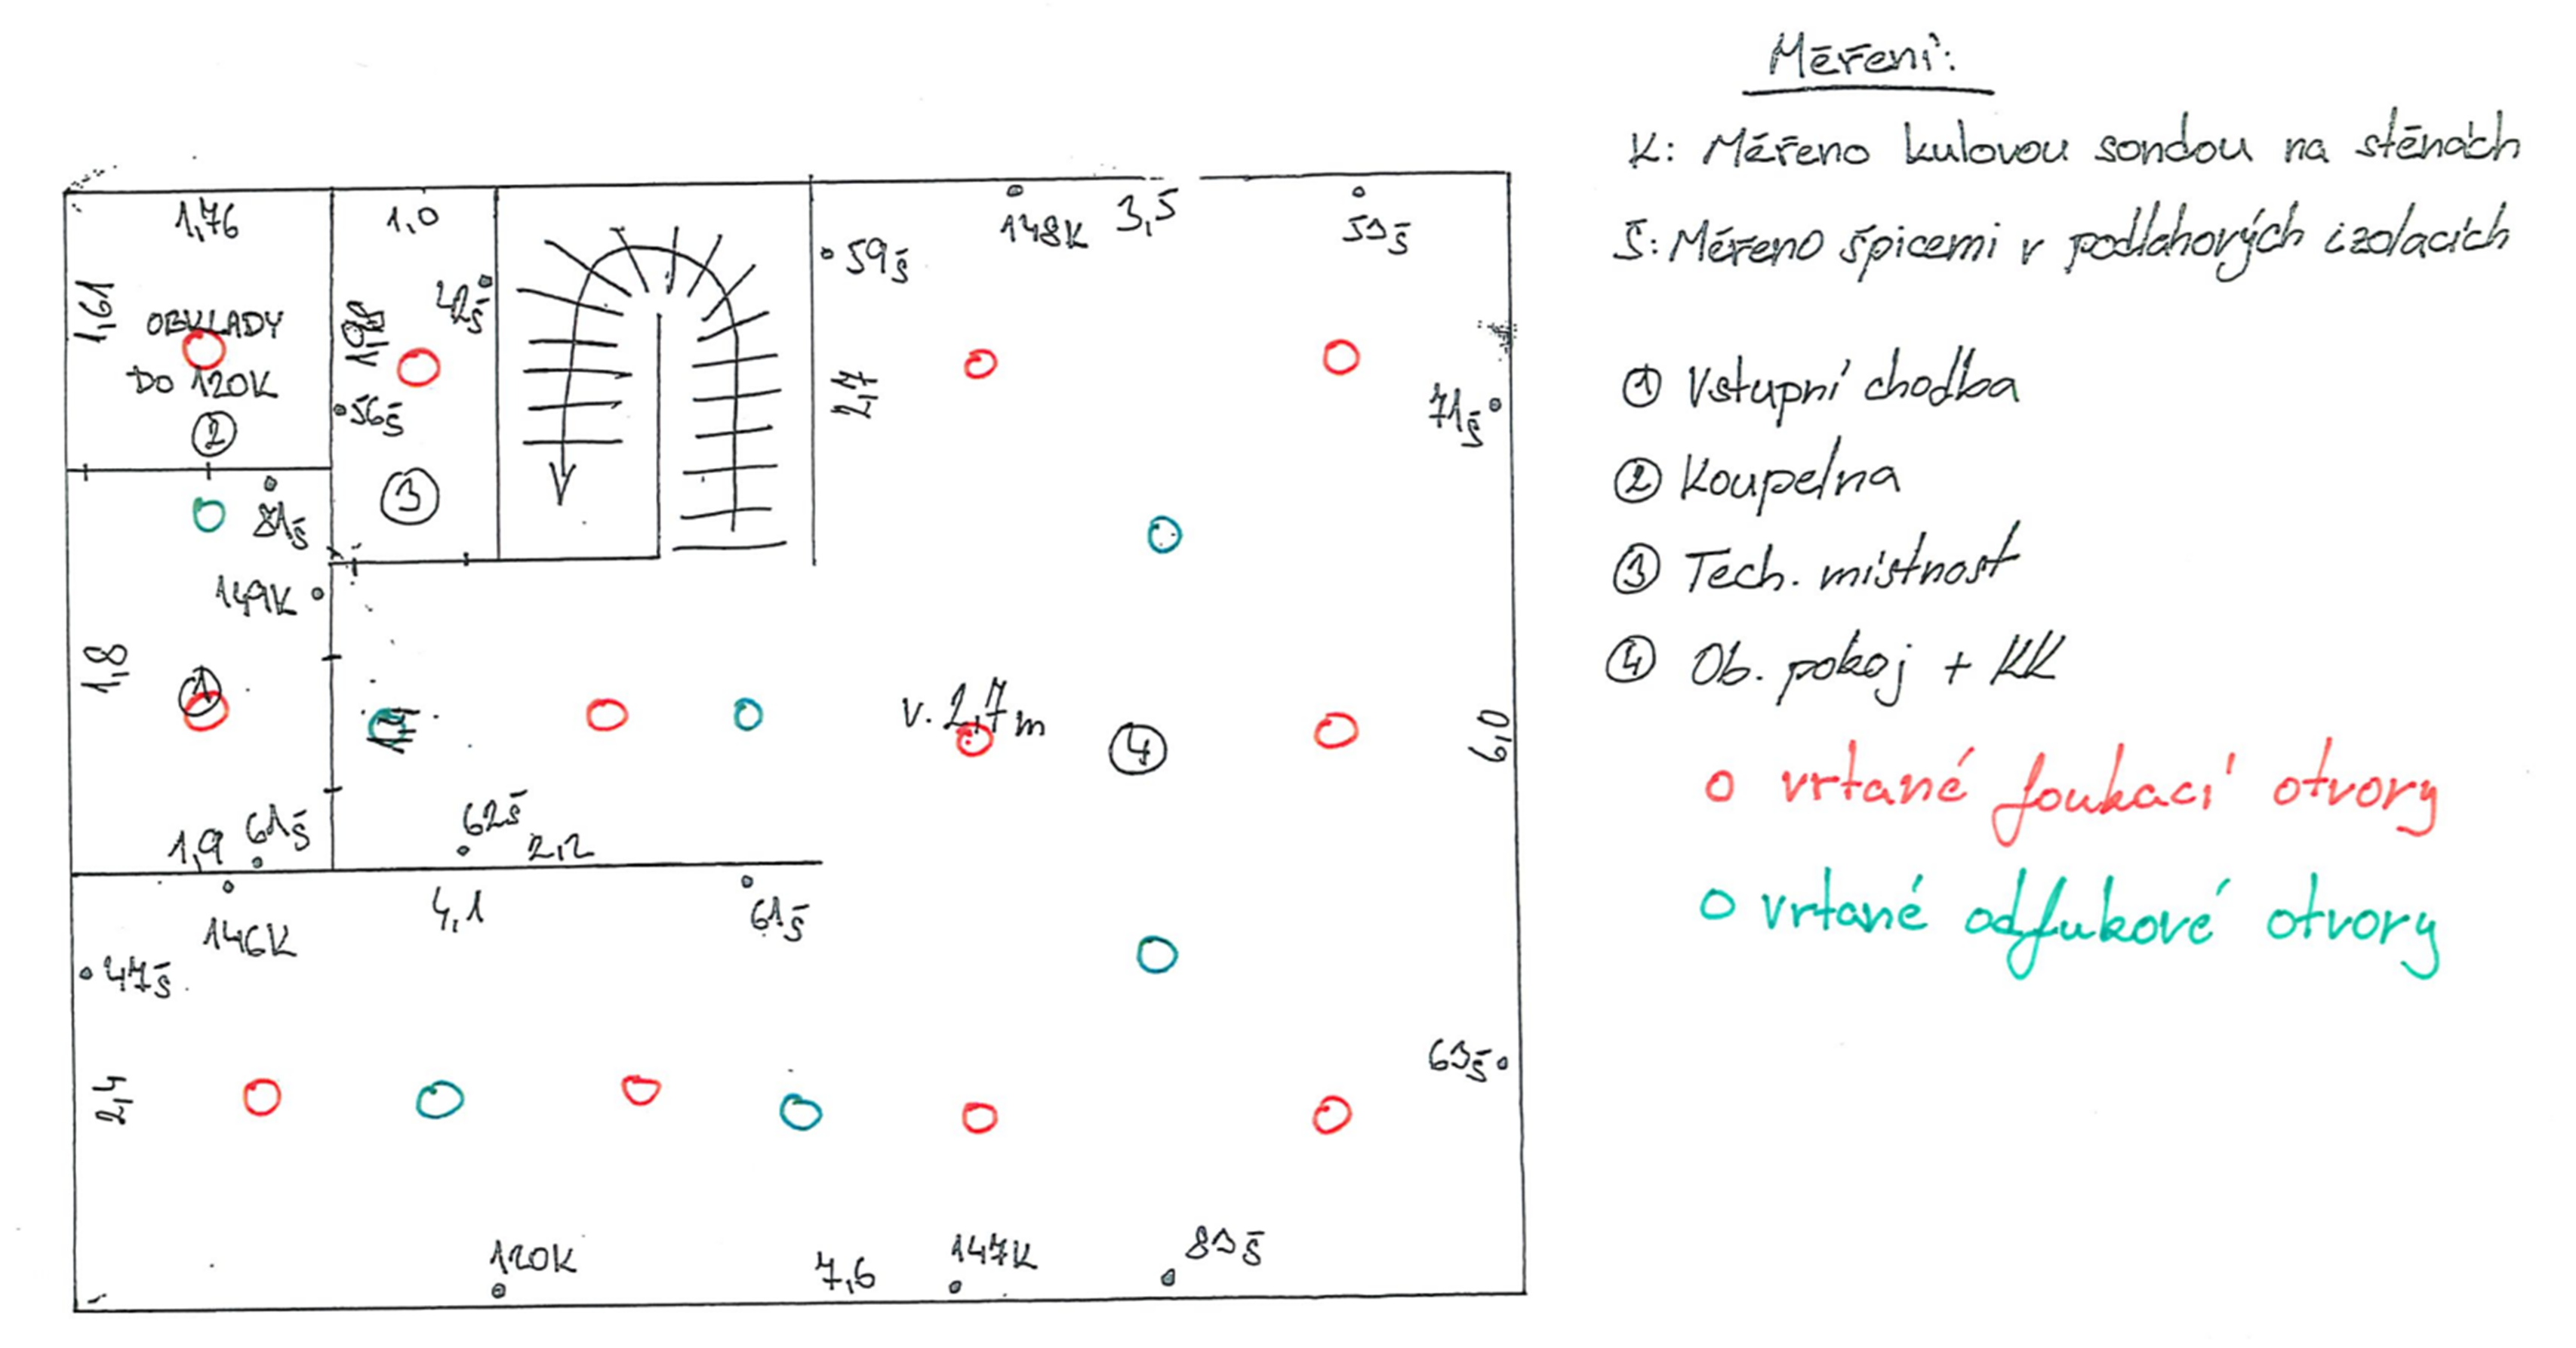 Měření:
K: Měřeno kulovou sondou na stěnách
Š: Měřeno špicemi v podlahových izolacích
① Vstupní chodba
② Koupelna
③ Tech. místnost
④ Ob. pokoj + KK
o vrtané foukací otvory
o vrtané odfukové otvory
1,76
1,0
148K
3,5
53Š
59Š
42Š
1,61
OBKLADY
DO 120K
②
1,98
56Š
③
2,7
71Š
81Š
149K
1,8
①
v. 2,7 m
④
6,0
1,9
61Š
62Š
2,2
146K
4,1
61Š
47Š
63Š
2,4
120K
7,6
147K
83Š